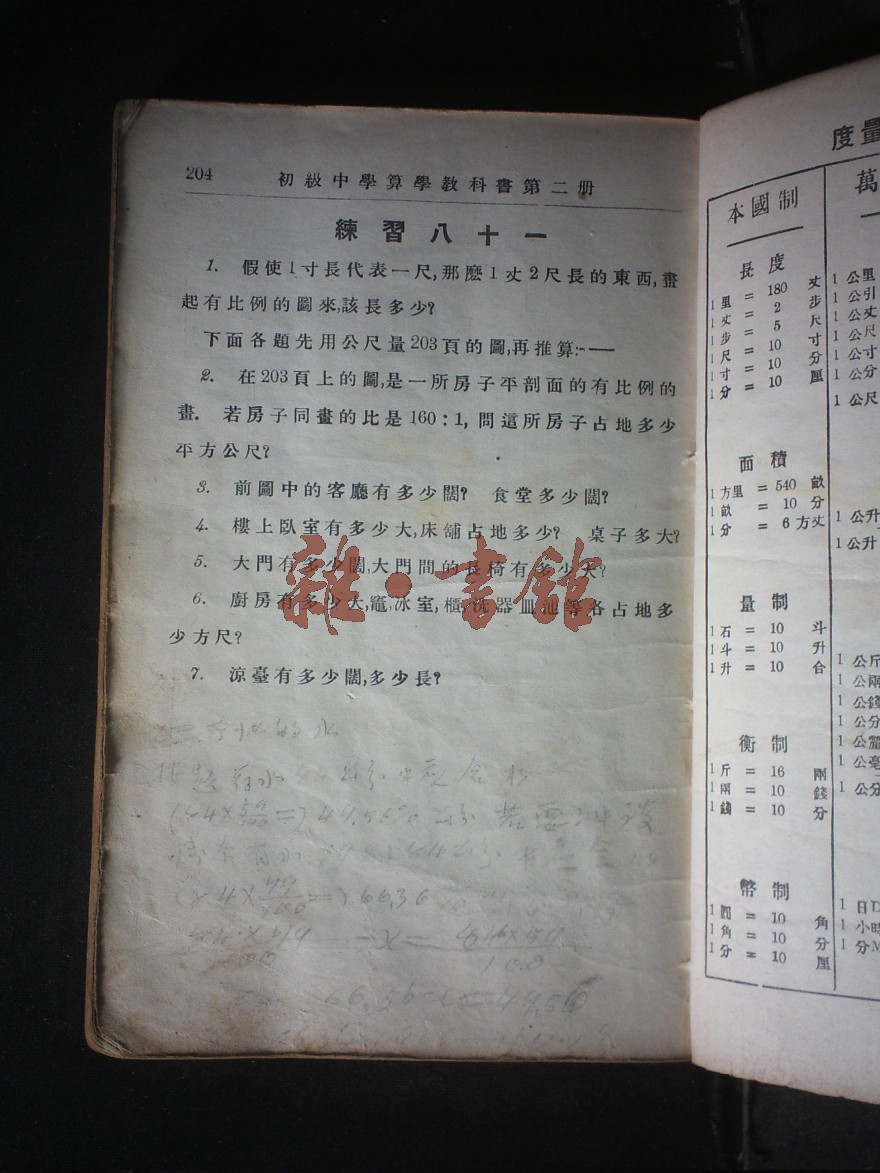 204 初級中學算學教科書第二册
練習八十一
1. 假使1寸長代表一尺,那麼1丈2尺長的東西,畫
起有比例的圖來,該長多少?
下面各題先用公尺量203頁的圖,再推算:——
2. 在203頁上的圖,是一所房子平剖面的有比例的
畫. 若房子同畫的比是160:1, 問這所房子占地多少
平方公尺?
3. 前圖中的客廳有多少闊? 食堂多少闊?
4. 樓上臥室有多少大,床舖占地多少? 桌子多大?
5. 大門有多少闊,大門間的長椅有多少大?
6. 廚房有多少大,竈,冰室,櫃,洗器皿池等各占地多
少方尺?
7. 涼臺有多少闊,多少長?
雜·書館
度量
本國制
長度
1里 = 180 丈
1丈 = 2 步
1步 = 5 尺
1尺 = 10 寸
1寸 = 10 分
1分 = 10 厘
面積
1方里 = 540 畝
1畝 = 10 分
1分 = 6 方丈
量制
1石 = 10 斗
1斗 = 10 升
1升 = 10 合
衡制
1斤 = 16 兩
1兩 = 10 錢
1錢 = 10 分
幣制
1圓 = 10 角
1角 = 10 分
1分 = 10 厘
萬
1公里
1公引
1公丈
1公尺
1公寸
1公分
1公尺
1公升
1公升
1公斤
1公兩
1公錢
1公分
1公釐
1公毫
1公分
1日D
1小時
1分M